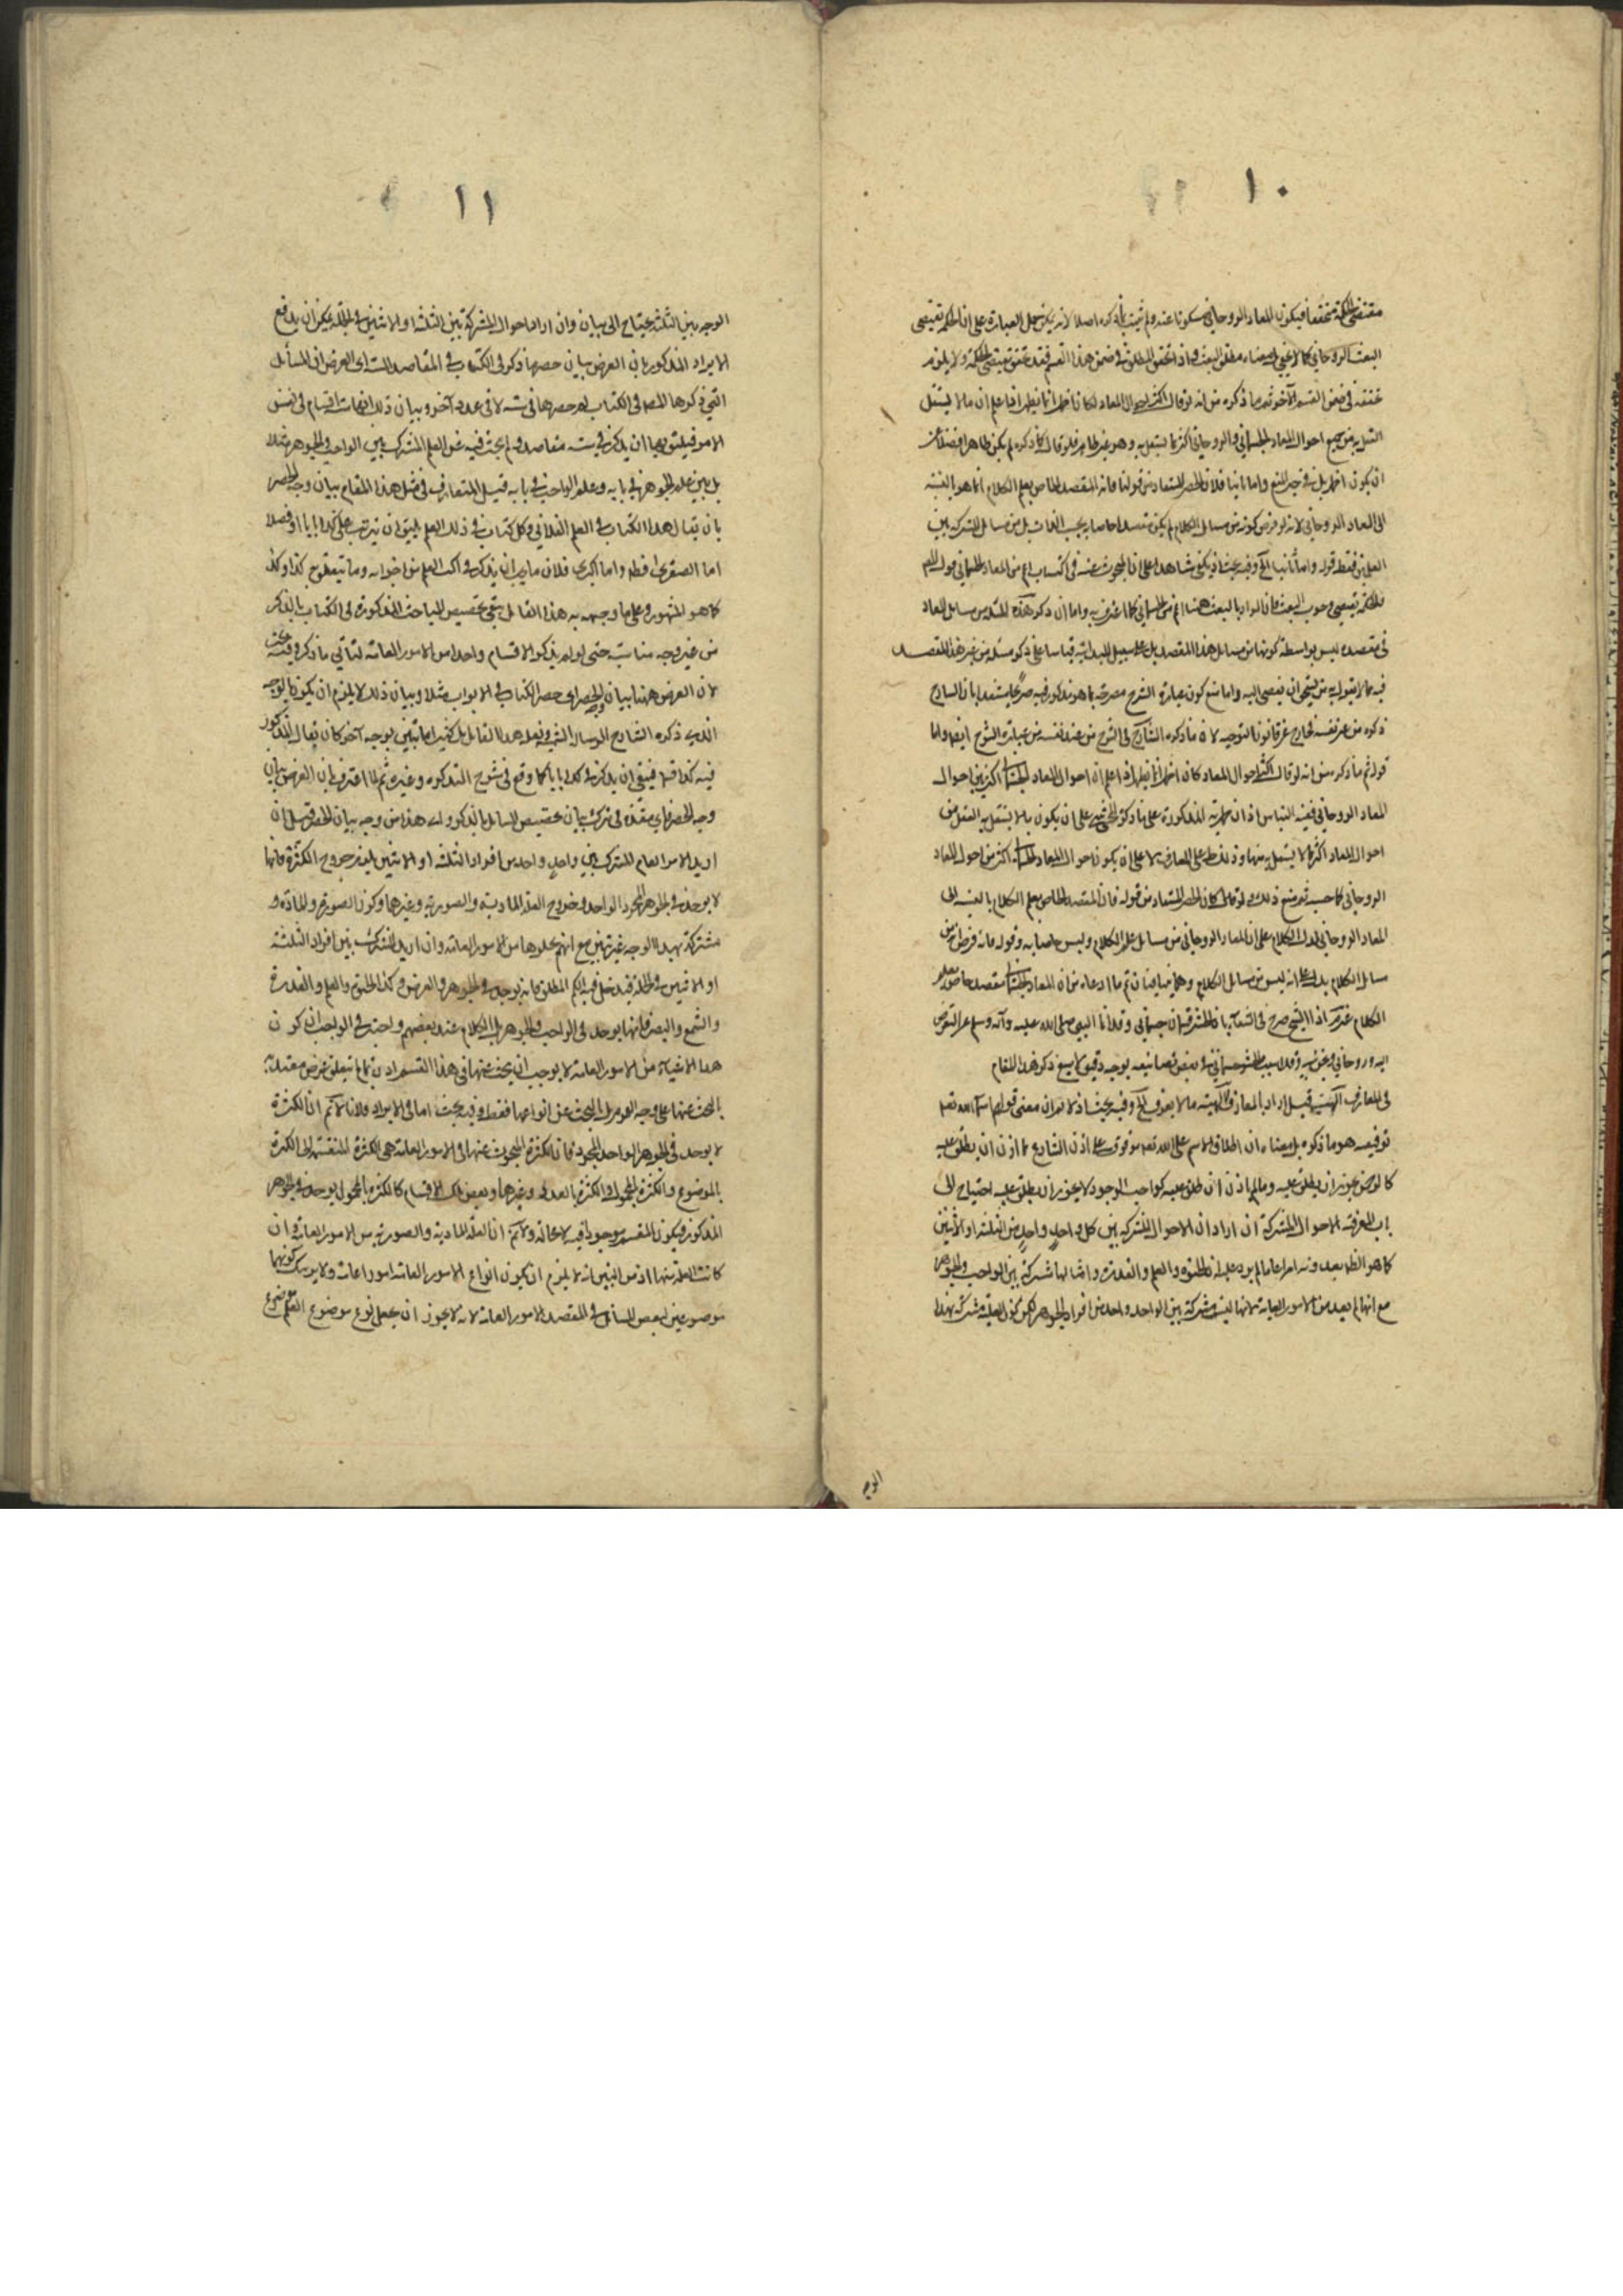 ١٠
مقتضى الحكمة متحققا فيكون المعاد الروحاني مسكوتا عنه ولم يثبت بما ذكره اصلا لانه يمكن حمل العبارة على ان الحكمة تقتضي
البعث الروحاني كما لا يخفى مطلق البعث فاذا تحقق المطلق في ضمن هذا القسم فقد تحقق مقتضى الحكمة ولا يلزم
تحققه في ضمن القسم الآخر ثم ما ذكره من انه لو قال اكثر احوال المعاد لكان اظهر اعلم ان ما لا يستقل
العقل به من جميع احوال المعاد الجسماني والروحاني اكثر مما يستقل به وهو غير ظاهر فلو قال كما ذكره لم يكن ظاهرا فضلا عن
ان يكون اظهر بل في حيز المنع واما ثانيا فلان الحصر المستفاد من قولنا فانه المقصد الخاص بعلم الكلام انما هو بالنسبة
الى المعاد الروحاني لانه لو فرض كونه من مسائل الكلام لم يكن مقصدا خاصا به بحسب الذات بل من مسائل المشتركة بين
العلمين فقط قوله واما ثانيا الخ وفيه بحث اذ يكفي شاهدا على ان المبحوث عنه في الكتاب اعم من المعاد الجسماني قول المصنف
الحكمة تقتضي وجوب البعث فان المراد بالبعث ههنا اعم من الجسماني كما اعترف به واما ان ذكر هذه المسئلة من مسائل المعاد
في مقصده ليس بواسطة كونها من مسائل هذا المقصد بل على سبيل المبدائية قياسا على ذكر مسئلة من غير هذا المقصد
فيه مما لا يقول به من يستحق ان يصغى اليه واما منع كون عبارة الشرح مصرحة بما هو مذكور فيه صريحا مستندا بان الشارح
ذكره من عند نفسه لخارج عن قانون التوجيه لان ما ذكره الشارح في الشرح من عند نفسه من عبارة الشرح ايضا واما
قوله ثم ما ذكره من انه لو قال اكثر احوال المعاد كان اظهر انما يظهر اذا علم ان احوال المعاد الجسماني اكثر من احوال
المعاد الروحاني ففيه التباس اذ ان اظهرية المذكورة على ما ذكره المحشي على ان يكون ما لا يستقل به العقل من
احوال المعاد اكثر مما لا يستقل به منها وذلك على المعارف لا على ان يكون احوال المعاد الجسماني اكثر من احوال المعاد
الروحاني كما حسبه ثم منع ذلك ولو قال كان الحصر المستفاد من قوله فان المقصد الخاص بعلم الكلام بالنسبة الى
المعاد الروحاني لدل الكلام على ان المعاد الروحاني من مسائل علم الكلام وليس خاصا به وقوله فانه فرض من
مسائل الكلام يدل على انه ليس من مسائل الكلام وهما متنافيان ثم ما ادعاه من ان المعاد الجسماني مقصد خاص بعلم
الكلام غير اذ الشيخ صرح في الشفا بان الحشر قسمان جسماني وقد انا النبي صلى الله عليه وآله وسلم عن التعرض
اليه وروحاني وقد الحشر الجسماني في بعض تصانيفه بوجه دقيق لا يسع ذكره هذا المقام
في المعارف الالهية قيل اراد بالمعارف الالهية ما لا يعرف الخ وفيه بحث اذ لا نعم ان معنى قولهم اسماء الله تعالى
توقيفية هو ما ذكره بل معناه ان اطلاق الاسم على الله تعالى موقوف على اذن الشارع فما اذن ان يطلق عليه
كالرحمن يجوز ان يطلق عليه وما لم ياذن ان يطلق عليه كواجب الوجود لا يجوز ان يطلق عليه احتياج الى
باب المعرفة الاحوال المشتركة ان اراد ان الاحوال المشتركة بين كل واحد واحد من الثلثة او الاثنين
كما هو الظاهر عد منه امرا عاما لم يرد عليه ان الحيوة والعلم والقدرة وامثالها مشتركة بين الواجب والجوهر
مع انها لم يعد من الامور العامة لانها ليست مشتركة بين الواحد واحد من افراد الجوهر لكن كون العلية مشتركة بهذا
الوجه
١١
الوجه بين الثلثة يحتاج الى بيان وان اراد احوال المشتركة بين الثلثة او الاثنين في الجملة يمكن ان يدفع
الايراد المذكور بان الغرض بيان حصر ما ذكر في الكتاب في المقاصد الستة اي الغرض ان المسائل
التي ذكرها المص في الكتاب لم حصرها في ستة لا في عدد آخر وبيان ذلك انها ستة اقسام في نفس
الامر فيليق بها ان يذكر في ستة مقاصد ولم يبحث فيه عن العلم المشترك بين الواجب والجوهر مثلا
بل بين علم الجوهر في بابه وعلم الواجب في بابه قيل المتعارف في مثل هذا المقام بيان وجه الحصر
بان يقال هذا الكتاب في العلم الفلاني وكل كتاب في ذلك العلم يليق ان يرتب على كذا بابا او فصلا
اما الصغرى فظ واما الكبرى فلان ما يجب ان يذكر في كتب العلم من اجزائه وما يتعلق به كذا وكذا
كما هو المشهور وعلى ما وجهه به هذا القائل يبقى تخصيص المباحث المذكورة في الكتاب بالذكر
من غير وجه مناسبة حتى لو لم يذكر الاقسام واحدا من الامور العامة لتأتي ما ذكره وفيه بحث
لان الغرض ههنا بيان وجه الحصر اي حصر الكتاب في الابواب مثلا وبيان ذلك لا يلزم ان يكون بالوجه
الذي ذكره الشارح ونقله هذا القائل بل كثيرا ما يبين بوجه آخر كان يقال المذكور
فيه كذا قسما فينبغي ان يذكر في كذا بابا كما وقع في شرح التذكرة وغيره ثم لما اعترف بان الغرض بيان
وجه الحصر في ترك بيان تخصيص المسائل بالذكر وراء هذا من وجه بيان الحصر قيل ان
اريد الامر العام المشترك بين واحد واحد من افراد الثلثة او الاثنين يلزم خروج الكثرة فانها
لا يوجد في الجوهر المجرد الواحد وخروج العلة المادية والصورية وغيرهما وكون الصورة والمادة
مشتركة بهذا الوجه غير بين مع انهم عدوها من الامور العامة وان اريد المشترك بين افراد الثلثة
او الاثنين في الجملة فيدخل فيه الكم المطلق فانه يوجد في الجوهر والعرض وكذا الحيوة والعلم والقدرة
والسمع والبصر فانها يوجد في الواجب والجوهر بل الكلام عند بعضهم واجيب في الواجب ان كون
هذه الاشياء من الامور العامة لا يوجب ان يبحث عنها في هذا القسم اذ ربما لم يتعلق غرض معتد به
بالبحث عنها على وجه العموم بل البحث عن انواعها فقط وفيه بحث اما في الايراد فلانا لا نم ان الكثرة
لا يوجد في الجوهر الواحد المجرد فان الكثرة المبحوث عنها في الامور العامة هي الكثرة المنقسمة الى الكثرة
بالموضوع والكثرة بالمحمول والكثرة بالعدد وغيرها وبعض تلك الاقسام كالكثرة بالمحمول يوجد في الجوهر
المذكور فيكون المقسم موجودا فيه لا محالة ولا نم ان العلة المادية والصورية من الامور العامة وان
كانت العلة منها اذ من البين انه لا يلزم ان يكون انواع الامور العامة امورا عامة ولا يوجب كونها
موضوعين لبعض المسائل في المقصد الامور العامة لانه لا يجوز ان يجعل نوع موضوع العلم موضوع